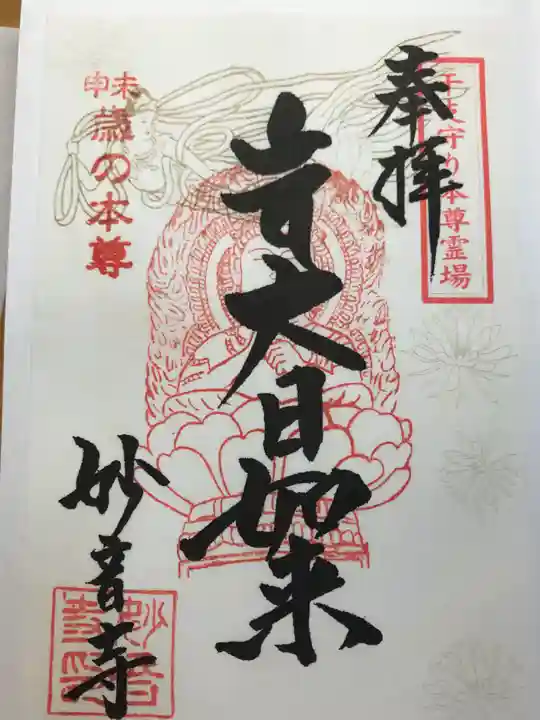 奉拝
干支守り本尊霊場
大日如来
未申歳の本尊
妙音寺